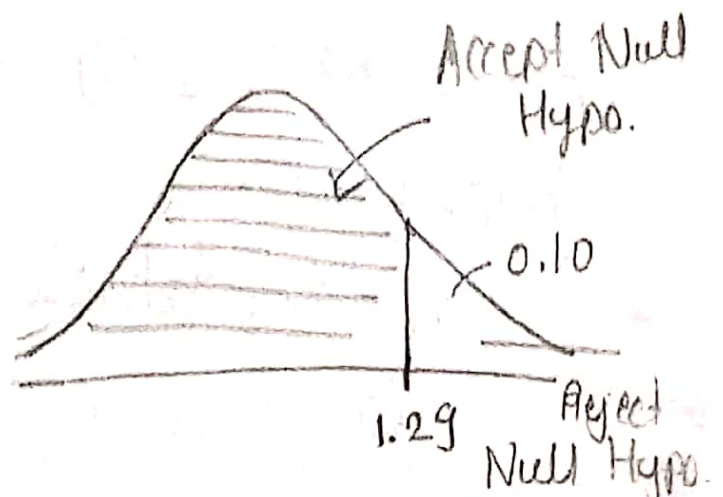 Accept Null
Hypo.
0.10
1.29
Reject
Null Hypo.